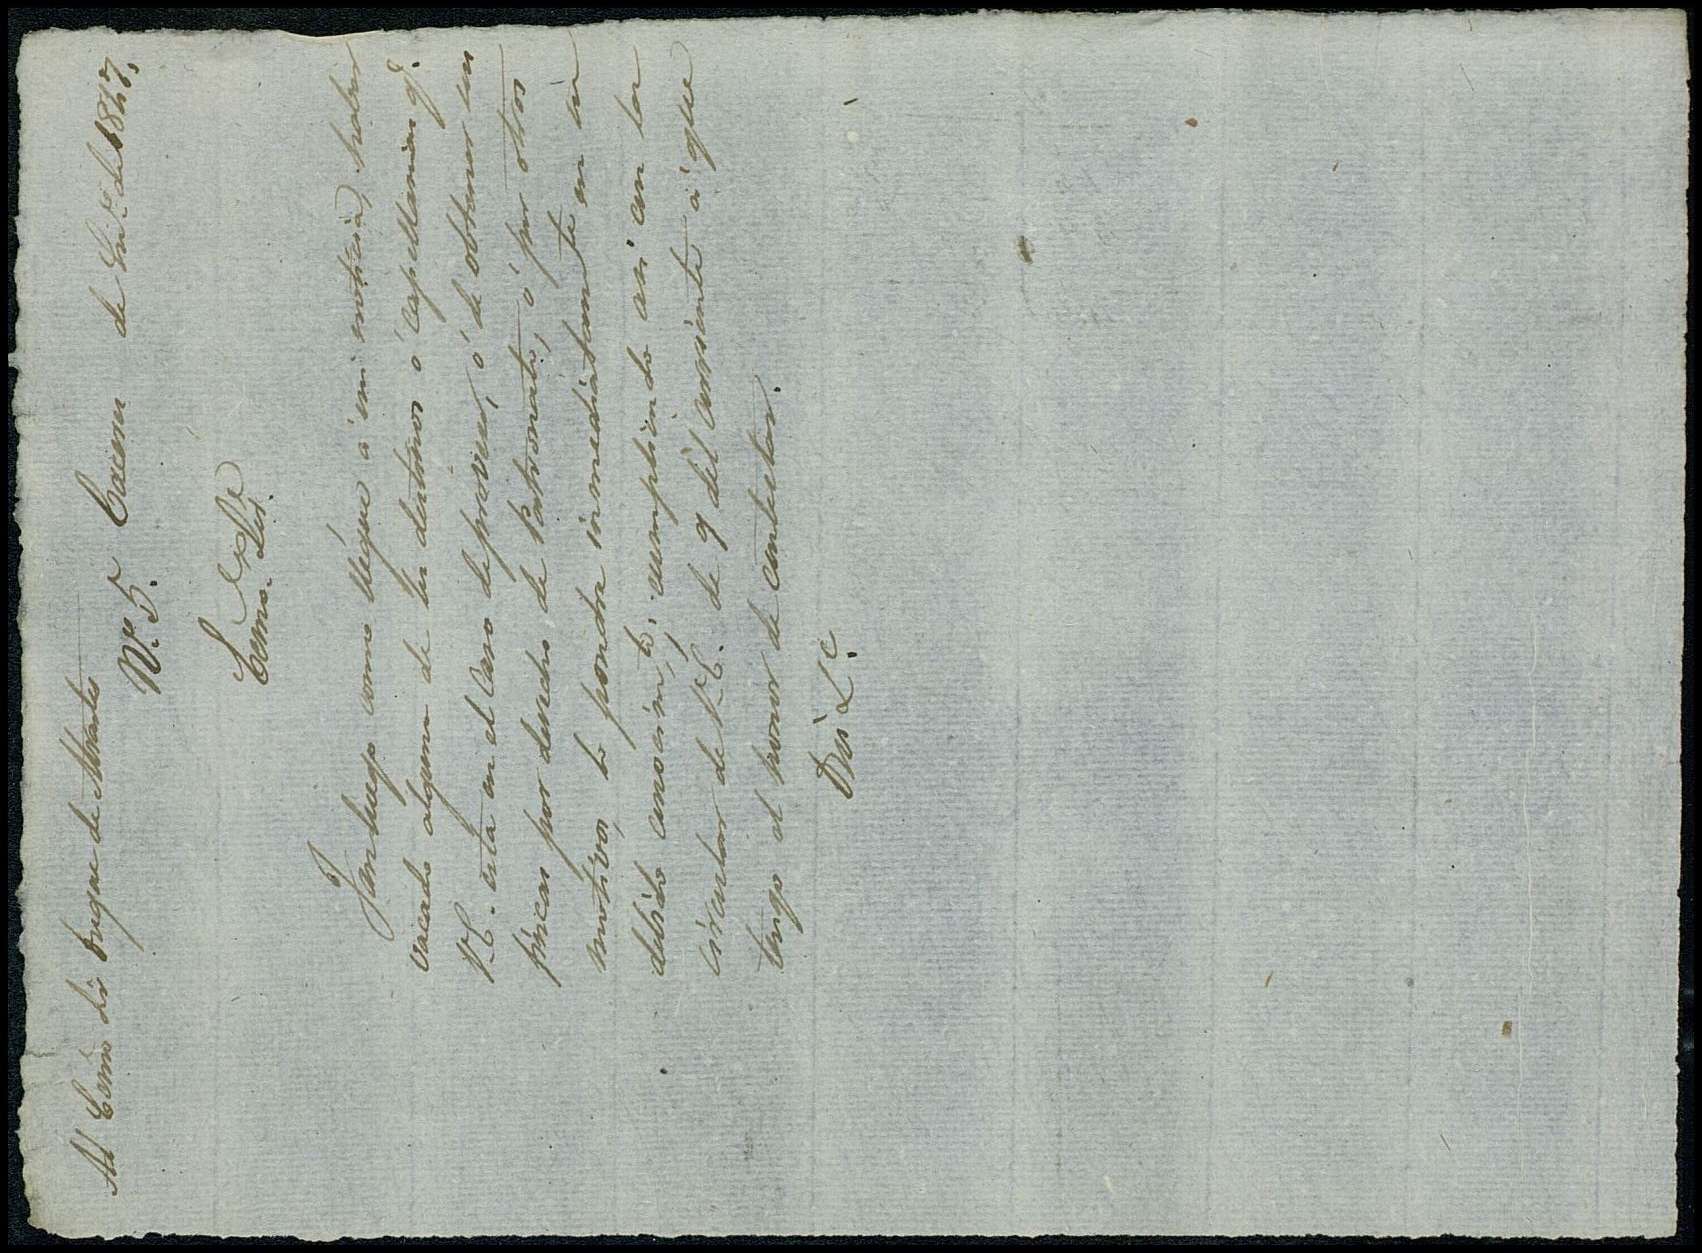 Al Exmo Sor Duque de Abrantes
N.º 5. Caceres de En.º de 1847,
Exmo. Sor.
Tan luego como llegue à mi noticia, haber
vacado alguno de los destinos ó capellanias q.
V.E. està en el caso de proveer, ó de obtener sus
fincas por derecho de Patronato, ó por otros
motivos, lo pondre inmediatam.te en su
debido conocim.to, cumpliendo asi con la
circular de V.E. de 9 del corriente à que
tengo el honor de contestar.
Dios &.